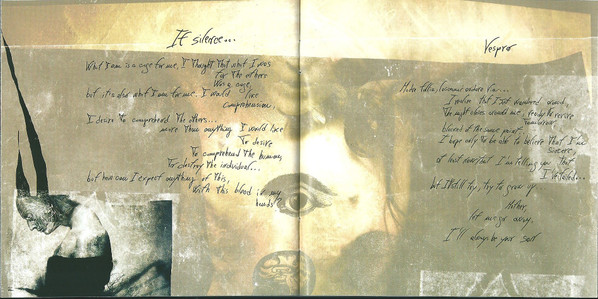 If silence...
What I am is a cage for me. I thought that what I was
for the others
was a cage,
but it is also what I am for me. I would like
comprehension,
I desire to comprehend the others...
more than anything I would like
to desire
to comprehend the human,
to destroy the individual...
but how can I expect anything of this,
with this blood in my
hands?
Vespro
I realize that I just wandered around,
The night closes around me, ready to receive
blurred at the same point.
I hope only to be able to believe that I'm
sincere
at least now that I'm telling you that
I failed...
but I still try, try to grow up.
Mother,
let me go away.
I'll always be your son